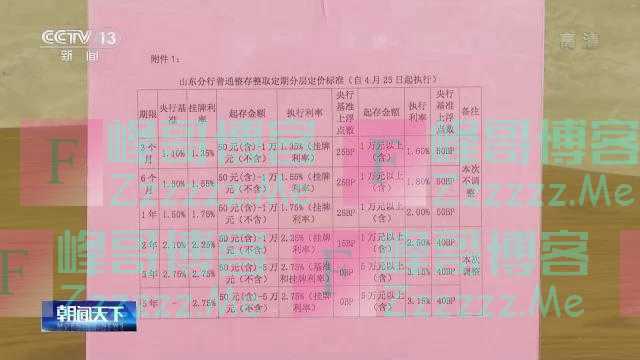 CCTV 13
新闻
高清
附件1：
山东分行普通整存整取定期分层定价标准（自4月25日起执行）
期限 央行基准 挂牌利率 起存金额 执行利率 央行基准上浮点数 起存金额 执行利率 央行基准上浮点数 备注
3个月 1.10% 1.35% 50元(含)-1万元（不含） 1.35%（挂牌利率） 25BP 1万元以上（含） 1.60% 50BP 本次不调整
6个月 1.30% 1.55% 50元(含)-1万元（不含） 1.55%（挂牌利率） 25BP 1万元以上（含） 1.80% 50BP
1年 1.50% 1.75% 50元(含)-1万元（不含） 1.75%（挂牌利率） 25BP 1万元以上（含） 2.00% 50BP
2年 2.10% 2.25% 50元(含)-1万元（不含） 2.25%（挂牌利率） 15BP 1万元以上（含） 2.50% 40BP 本次调整
2.75% 2.75% 50元(含)-5万元（不含） 2.75%（基准和挂牌利率） 0BP 5万元以上（含） 3.15% 40BP
5年 2.75% 50元(含)-5万元（不含） 2.75%（挂牌利率） 0BP 5万元以上（含） 3.15% 40BP
F 峰哥博客
Zzzzzz.Me
F 峰哥博客
Zzzzzz.Me
F 峰哥博客
Zzzzzz.Me
F 峰哥博客
Zzzzzz.Me
朝闻天下